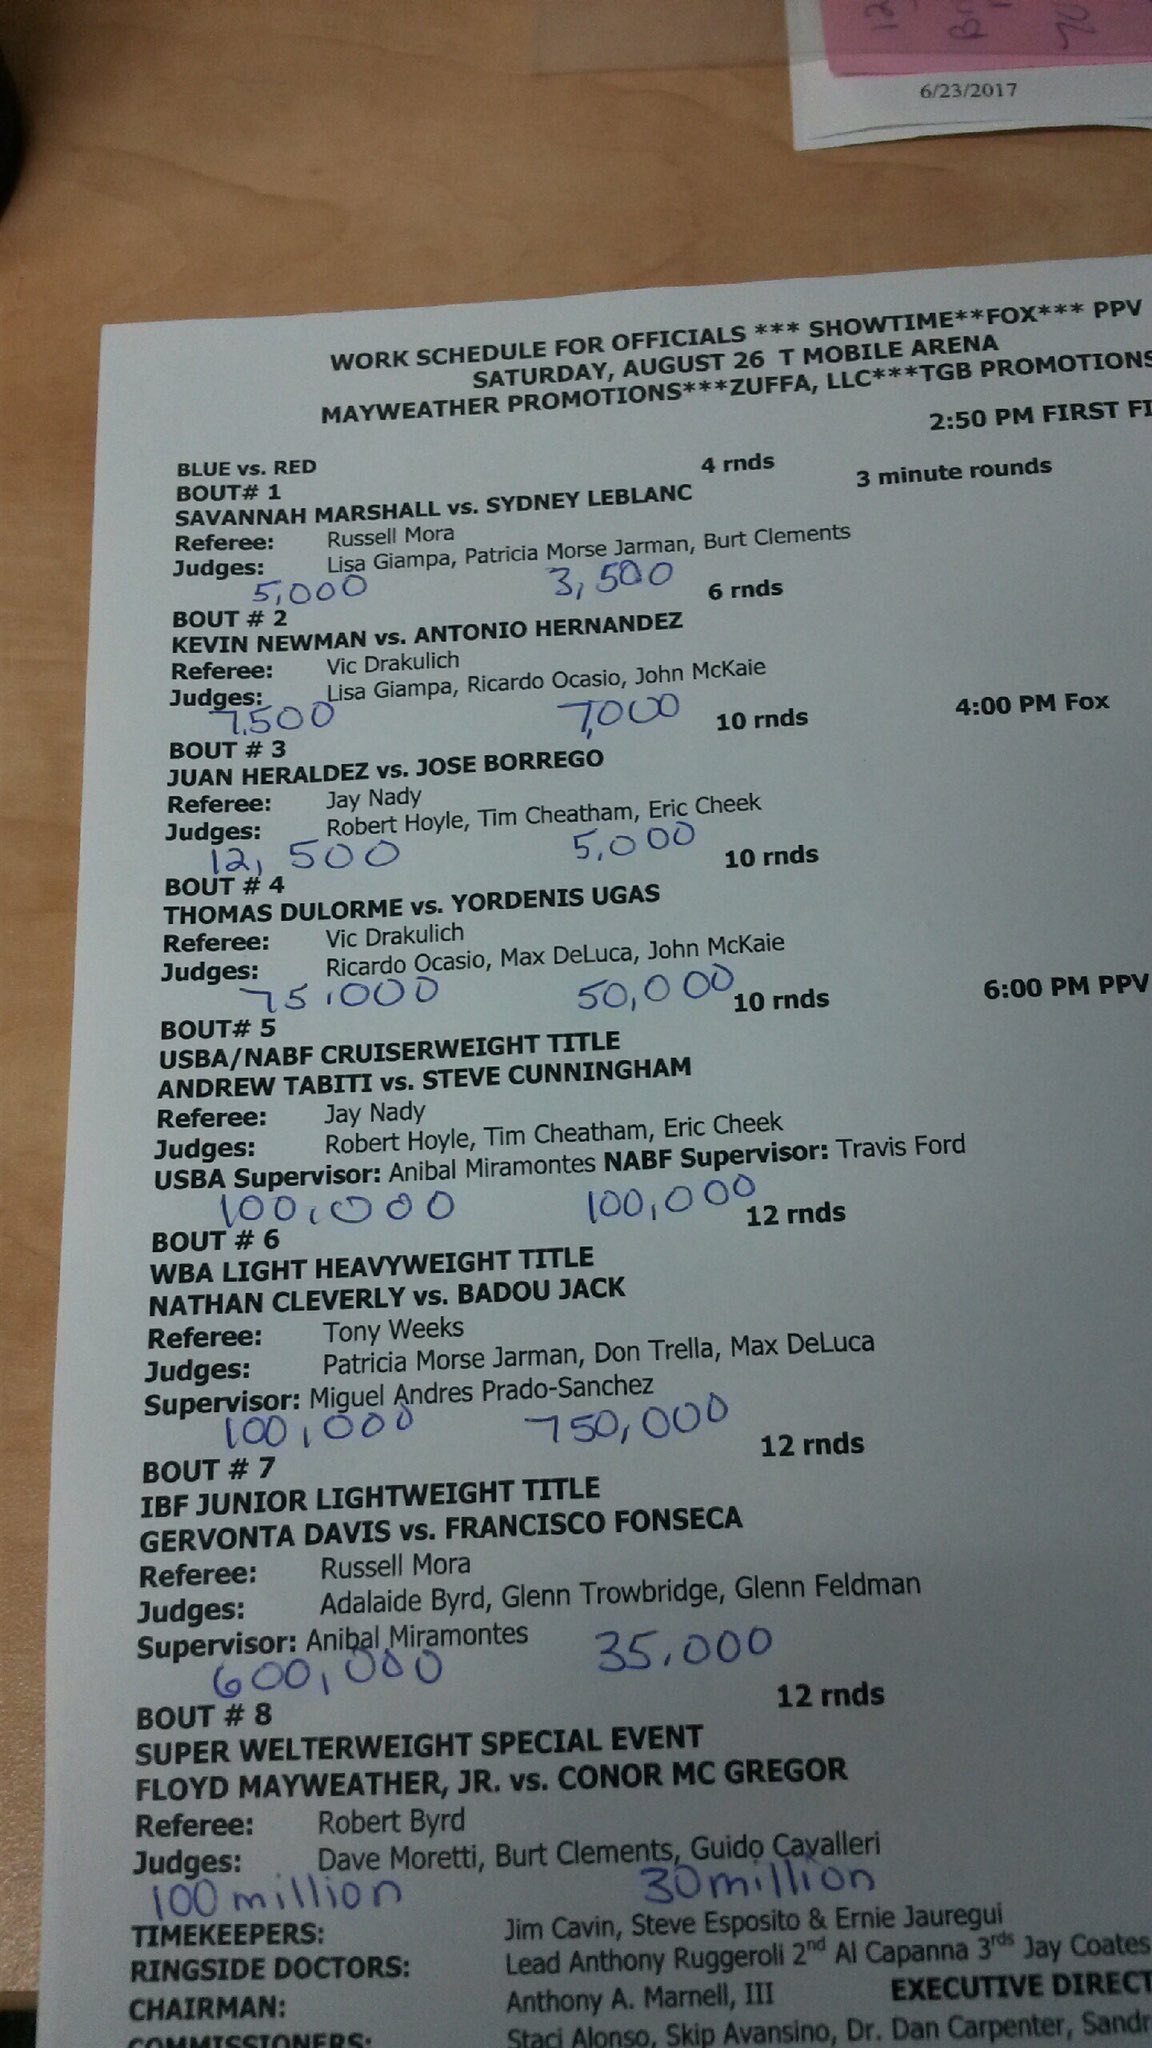 6/23/2017
WORK SCHEDULE FOR OFFICIALS *** SHOWTIME**FOX*** PPV
SATURDAY, AUGUST 26 T MOBILE ARENA
MAYWEATHER PROMOTIONS***ZUFFA, LLC***TGB PROMOTIONS
2:50 PM FIRST
BLUE vs. RED
BOUT# 1 4 rnds 3 minute rounds
SAVANNAH MARSHALL vs. SYDNEY LEBLANC
Referee: Russell Mora
Judges: Lisa Giampa, Patricia Morse Jarman, Burt Clements
5,000 3,500
BOUT # 2 6 rnds
KEVIN NEWMAN vs. ANTONIO HERNANDEZ
Referee: Vic Drakulich
Judges: Lisa Giampa, Ricardo Ocasio, John McKaie
7,500 7,000
BOUT # 3 10 rnds 4:00 PM Fox
JUAN HERALDEZ vs. JOSE BORREGO
Referee: Jay Nady
Judges: Robert Hoyle, Tim Cheatham, Eric Cheek
12,500 5,000
BOUT # 4 10 rnds
THOMAS DULORME vs. YORDENIS UGAS
Referee: Vic Drakulich
Judges: Ricardo Ocasio, Max DeLuca, John McKaie
75,000 50,000
BOUT# 5 10 rnds 6:00 PM PPV
USBA/NABF CRUISERWEIGHT TITLE
ANDREW TABITI vs. STEVE CUNNINGHAM
Referee: Jay Nady
Judges: Robert Hoyle, Tim Cheatham, Eric Cheek
USBA Supervisor: Anibal Miramontes NABF Supervisor: Travis Ford
100,000 100,000
BOUT # 6 12 rnds
WBA LIGHT HEAVYWEIGHT TITLE
NATHAN CLEVERLY vs. BADOU JACK
Referee: Tony Weeks
Judges: Patricia Morse Jarman, Don Trella, Max DeLuca
Supervisor: Miguel Andres Prado-Sanchez
100,000 750,000
BOUT # 7 12 rnds
IBF JUNIOR LIGHTWEIGHT TITLE
GERVONTA DAVIS vs. FRANCISCO FONSECA
Referee: Russell Mora
Judges: Adalaide Byrd, Glenn Trowbridge, Glenn Feldman
Supervisor: Anibal Miramontes
600,000 35,000
BOUT # 8 12 rnds
SUPER WELTERWEIGHT SPECIAL EVENT
FLOYD MAYWEATHER, JR. vs. CONOR MC GREGOR
Referee: Robert Byrd
Judges: Dave Moretti, Burt Clements, Guido Cavalleri
100 million 30 million
TIMEKEEPERS: Jim Cavin, Steve Esposito & Ernie Jauregui
RINGSIDE DOCTORS: Lead Anthony Ruggeroli 2nd Al Capanna 3rds Jay Coates
CHAIRMAN: Anthony A. Marnell, III EXECUTIVE DIRECT
COMMISSIONERS: Staci Alonso, Skip Avansino, Dr. Dan Carpenter, Sandr